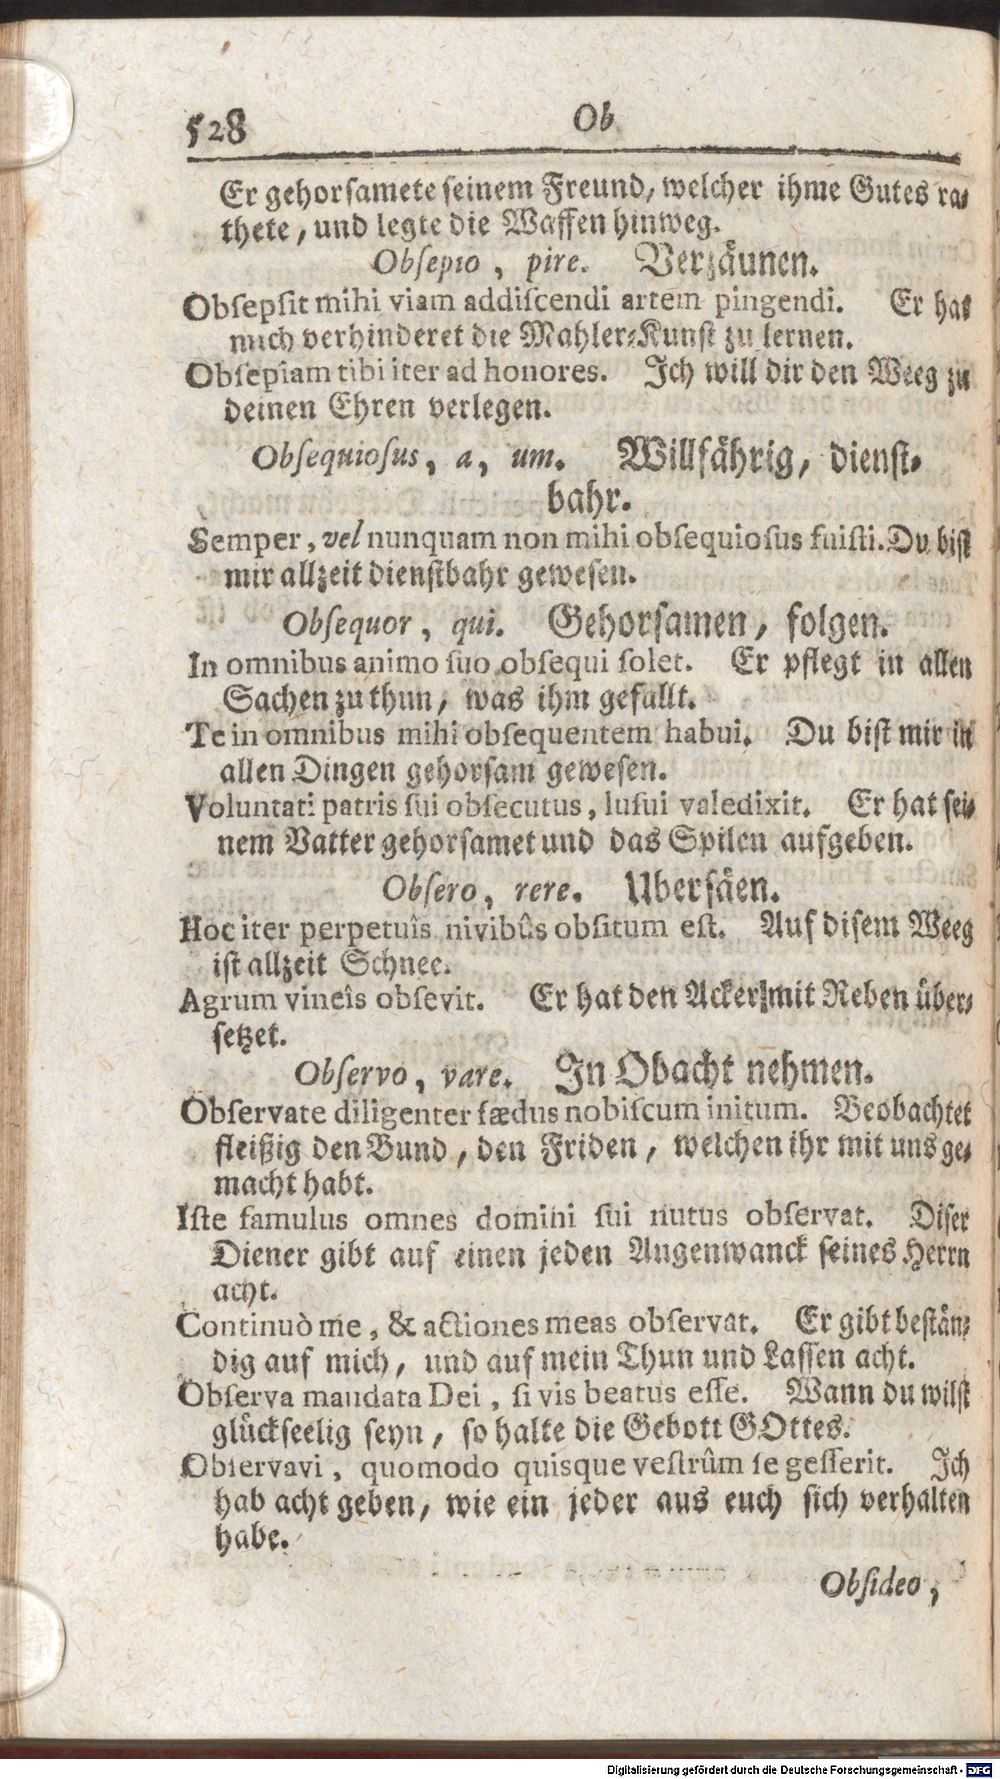 528 Ob
Er gehorsamete seinem Freund, welcher ihme Gutes ra-
thete, und legte die Waffen hinweg.
Obsepio, pire. Verzäunen.
Obsepsit mihi viam addiscendi artem pingendi. Er hat
mich verhinderet die Mahler-Kunst zu lernen.
Obsepiam tibi iter ad honores. Ich will dir den Weeg zu
deinen Ehren verlegen.
Obsequiosus, a, um. Willfährig, dienst-
bahr.
Semper, vel nunquam non mihi obsequiosus fuisti. Du bist
mir allzeit dienstbahr gewesen.
Obsequor, qui. Gehorsamen, folgen.
In omnibus animo suo obsequi solet. Er pflegt in allen
Sachen zu thun, was ihm gefallt.
Te in omnibus mihi obsequentem habui. Du bist mir in
allen Dingen gehorsam gewesen.
Voluntati patris sui obsecutus, lusui valedixit. Er hat sei-
nem Vatter gehorsamet und das Spilen aufgeben.
Obsero, rere. Ubersäen.
Hoc iter perpetuîs nivibûs obsitum est. Auf disem Weeg
ist allzeit Schnee.
Agrum vineîs obsevit. Er hat den Acker mit Reben über-
setzet.
Observo, vare. In Obacht nehmen.
Observate diligenter fædus nobiscum initum. Beobachtet
fleißig den Bund, den Friden, welchen ihr mit uns ge-
macht habt.
Iste famulus omnes domini sui nutus observat. Diser
Diener gibt auf einen jeden Augenwanck seines Herrn
acht.
Continuò me, & actiones meas observat. Er gibt bestän-
dig auf mich, und auf mein Thun und Lassen acht.
Observa mandata Dei, si vis beatus esse. Wann du wilst
glückseelig seyn, so halte die Gebott GOttes.
Observavi, quomodo quisque vestrûm se gesserit. Ich
hab acht geben, wie ein jeder aus euch sich verhalten
habe.
Obsideo,
Digitalisierung gefördert durch die Deutsche Forschungsgemeinschaft - DFG